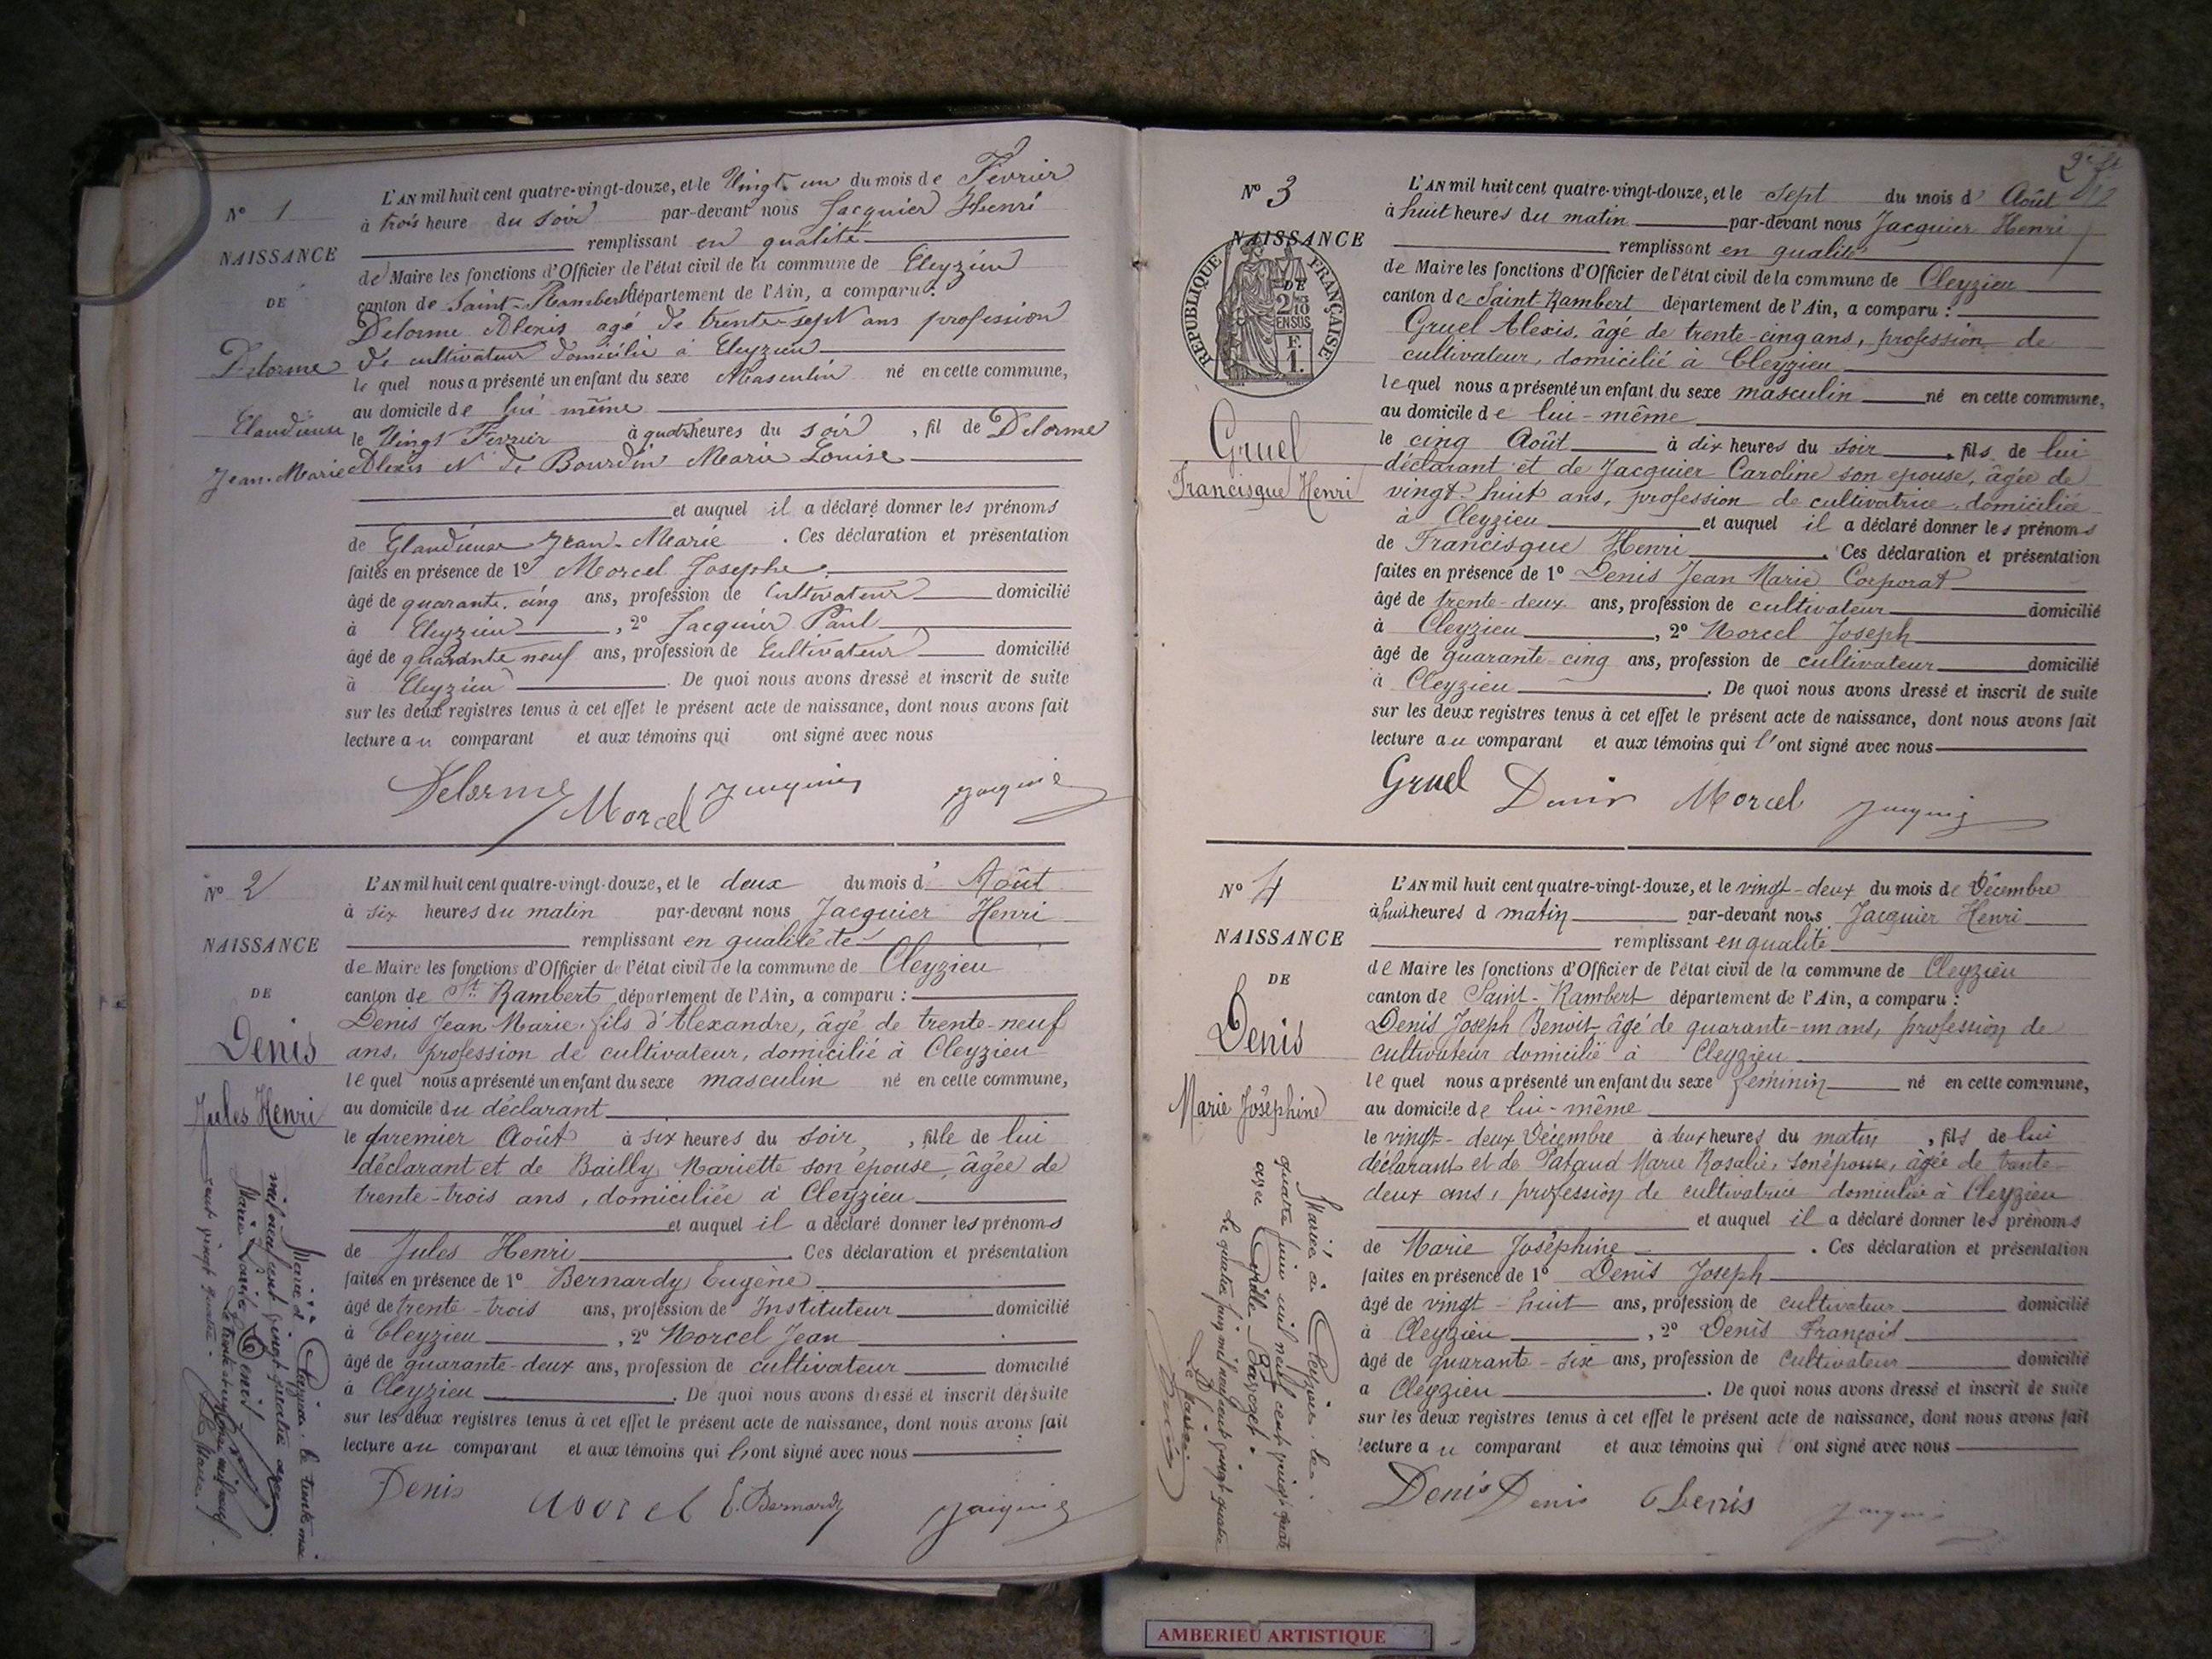 N° 1
NAISSANCE
DE
Delorme
Claudieuse
Jean-Marie
L'AN mil huit cent quatre-vingt-douze, et le Vingt un du mois de Février
à trois heure du soir par-devant nous Jacquier Henri
remplissant en qualité
de Maire les fonctions d'Officier de l'état civil de la commune de Cleyzieu
canton de Saint-Rambert département de l'Ain, a comparu :
Delorme Alexis agé de trente-sept ans profession
de cultivateur domicilié à Cleyzieu
le quel nous a présenté un enfant du sexe Masculin né en cette commune,
au domicile de lui même
le Vingt Février à quatr heures du soir , fil de Delorme
Alexis et de Bourdin Marie Louise
et auquel il a déclaré donner les prénoms
de Jean-Marie . Ces déclaration et présentation
faites en présence de 1° Morcel Josephe
âgé de quarante cinq ans, profession de Cultivateur domicilié
à Cleyzieu , 2° Jacquier Paul
âgé de quarante neuf ans, profession de Cultivateur domicilié
à Cleyzieu . De quoi nous avons dressé et inscrit de suite
sur les deux registres tenus à cet effet le présent acte de naissance, dont nous avons fait
lecture au comparant et aux témoins qui ont signé avec nous
Delorme Morcel Jacquier Jacquier
N° 2
NAISSANCE
DE
Denis
Jules Henri
L'AN mil huit cent quatre-vingt-douze, et le deux du mois d' Août
à six heures du matin par-devant nous Jacquier Henri
remplissant en qualité de
de Maire les fonctions d'Officier de l'état civil de la commune de Cleyzieu
canton de St Rambert département de l'Ain, a comparu :
Denis Jean Marie fils d'Alexandre, âgé de trente-neuf
ans, profession de cultivateur, domicilié à Cleyzieu
le quel nous a présenté un enfant du sexe masculin né en cette commune,
au domicile du déclarant
le premier Août à six heures du soir , fille de lui
déclarant et de Bailly Mariette son épouse, âgée de
trente-trois ans, domiciliée à Cleyzieu
et auquel il a déclaré donner les prénoms
de Jules Henri . Ces déclaration et présentation
faites en présence de 1° Bernardy Eugène
âgé de trente-trois ans, profession de Instituteur domicilié
à Cleyzieu , 2° Morcel Jean
âgé de quarante-deux ans, profession de cultivateur domicilié
à Cleyzieu . De quoi nous avons dressé et inscrit de suite
sur les deux registres tenus à cet effet le présent acte de naissance, dont nous avons fait
lecture au comparant et aux témoins qui l'ont signé avec nous
Denis Morcel E. Bernardy Jacquier
Marié à Cleyzieu le trente mai
mil neuf cent vingt quatre avec
Marie Denis
N° 3
NAISSANCE
DE
RÉPUBLIQUE FRANÇAISE
2/10
EN SUS
F.
1.
Gruel
Francisque Henri
L'AN mil huit cent quatre-vingt-douze, et le sept du mois d' Août
à huit heures du matin par-devant nous Jacquier Henri
remplissant en qualité
de Maire les fonctions d'Officier de l'état civil de la commune de Cleyzieu
canton de Saint-Rambert département de l'Ain, a comparu :
Gruel Alexis, âgé de trente-cinq ans, profession de
cultivateur, domicilié à Cleyzieu
le quel nous a présenté un enfant du sexe masculin né en cette commune,
au domicile de lui-même
le cinq Août à dix heures du soir , fils de lui
déclarant et de Jacquier Caroline son epouse, âgée de
vingt-huit ans, profession de cultivatrice domiciliée
à Cleyzieu et auquel il a déclaré donner les prénoms
de Francisque Henri . Ces déclaration et présentation
faites en présence de 1° Denis Jean Marie Corporat
âgé de trente-deux ans, profession de cultivateur domicilié
à Cleyzieu , 2° Morcel Joseph
âgé de quarante-cinq ans, profession de cultivateur domicilié
à Cleyzieu . De quoi nous avons dressé et inscrit de suite
sur les deux registres tenus à cet effet le présent acte de naissance, dont nous avons fait
lecture au comparant et aux témoins qui l'ont signé avec nous
Gruel Denis Morcel Jacquier
N° 4
NAISSANCE
DE
Denis
Marie Joséphine
L'AN mil huit cent quatre-vingt-douze, et le vingt-deux du mois de Décembre
à huit heures d matin par-devant nous Jacquier Henri
remplissant en qualité
de Maire les fonctions d'Officier de l'état civil de la commune de Cleyzieu
canton de Saint-Rambert département de l'Ain, a comparu :
Denis Joseph Benoit âgé de quarante-un ans, profession de
cultivateur domicilié à Cleyzieu
le quel nous a présenté un enfant du sexe féminin né en cette commune,
au domicile de lui-même
le vingt-deux Décembre à deux heures du matin , fils de lui
déclarant et de Pataud Marie Rosalie, son épouse, âgée de trente
deux ans, profession de cultivatrice domiciliée à Cleyzieu
et auquel il a déclaré donner les prénoms
de Marie Joséphine . Ces déclaration et présentation
faites en présence de 1° Denis Joseph
âgé de vingt-huit ans, profession de cultivateur domicilié
à Cleyzieu , 2° Denis François
âgé de quarante-six ans, profession de cultivateur domicilié
a Cleyzieu . De quoi nous avons dressé et inscrit de suite
sur les deux registres tenus à cet effet le présent acte de naissance, dont nous avons fait
lecture au comparant et aux témoins qui l'ont signé avec nous
Denis Denis Denis Jacquier
Mariée à Cleyzieu le
quatre juin mil neuf cent vingt quatre
avec
Le quatre juin mil neuf cent vingt quatre
AMBERIEU ARTISTIQUE